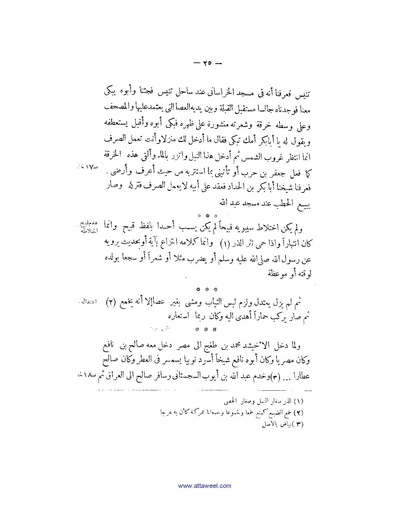 — ٢٥ —
تنيس فعرفنا أنه فى مسجد الخراسانى عند ساحل تنيس فجئنا وأبوه يبكى
معنا فوجدناه جالسا مستقبل القبلة وبين يديه العصا التى يعتمد عليها والمصحف
وعلى وسطه خرقة وشعرته منشورة على ظهره فبكى أبوه وأقبل يستعطفه
ويقول له يا أبا بكر أمك تبكى فقال ما أدخل لك منزلا وأنت تعمل الصرف
انما انتظر غروب الشمس ثم أدخل هذا النيل واتزر بالماء وألقى هذه الخرقة
كما فعل جعفر بن حرب أو تأتينى بما استتر به من حيث أعرف وأرضى .
فعرفنا شيخنا أبا بكر بن الحداد فعقد على أبيه لا يعمل الصرف فتركه وصار
يبيع الحطب عند مسجد عبد الله
* * *
ولم يكن اختلاط سيبويه قبيحاً لم يكن يسب أحدا بلفظ قبيح وانما
كان انتهاراً واذا حمى نثر الذر (١) وانما كلامه انتزاع بآية أو بحديث يرويه
عن رسول الله صلى الله عليه وسلم أو يضرب مثلا أو شعراً أو سجعا يولده
لوقته أو موعظة
* * *
ثم لم يزل يعتدل ولزم لبس الثياب ومشى بغير عصا إلا أنه يخمع (٢)
ثم صار يركب حماراً أهدى اليه وكان ربما استعاره
* * *
ولما دخل الاخشيد محمد بن طغج الى مصر دخل معه صالح بن نافع
وكان مصريا وكان أبوه نافع شيخاً أسود نوبيا يسمسر فى العطر وكان صالح
عطارا ... (٣) وخدم عبد الله بن أيوب السجستانى وسافر صالح الى العراق ثم
(١) الذر صغار النمل وصغار الحصى
(٢) خمع الضبع كمنع خمعا وخموعا وخمعانا محركة كأن به عرجا
(٣) بياض بالأصل
www.attaweel.com